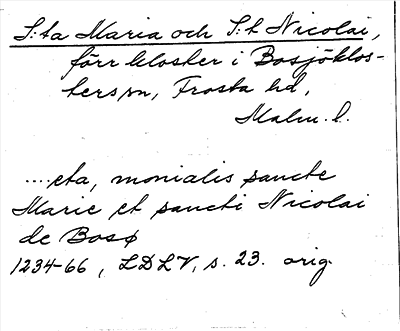 S:ta Maria och S:t Nicolai,
förr kloster i Bosjöklos-
ters sn, Frosta hd,
Malm. l.
....eta, monialis sancte
Marie et sancti Nicolai
de Bosø
1234-66, LDLV, s. 23. orig.